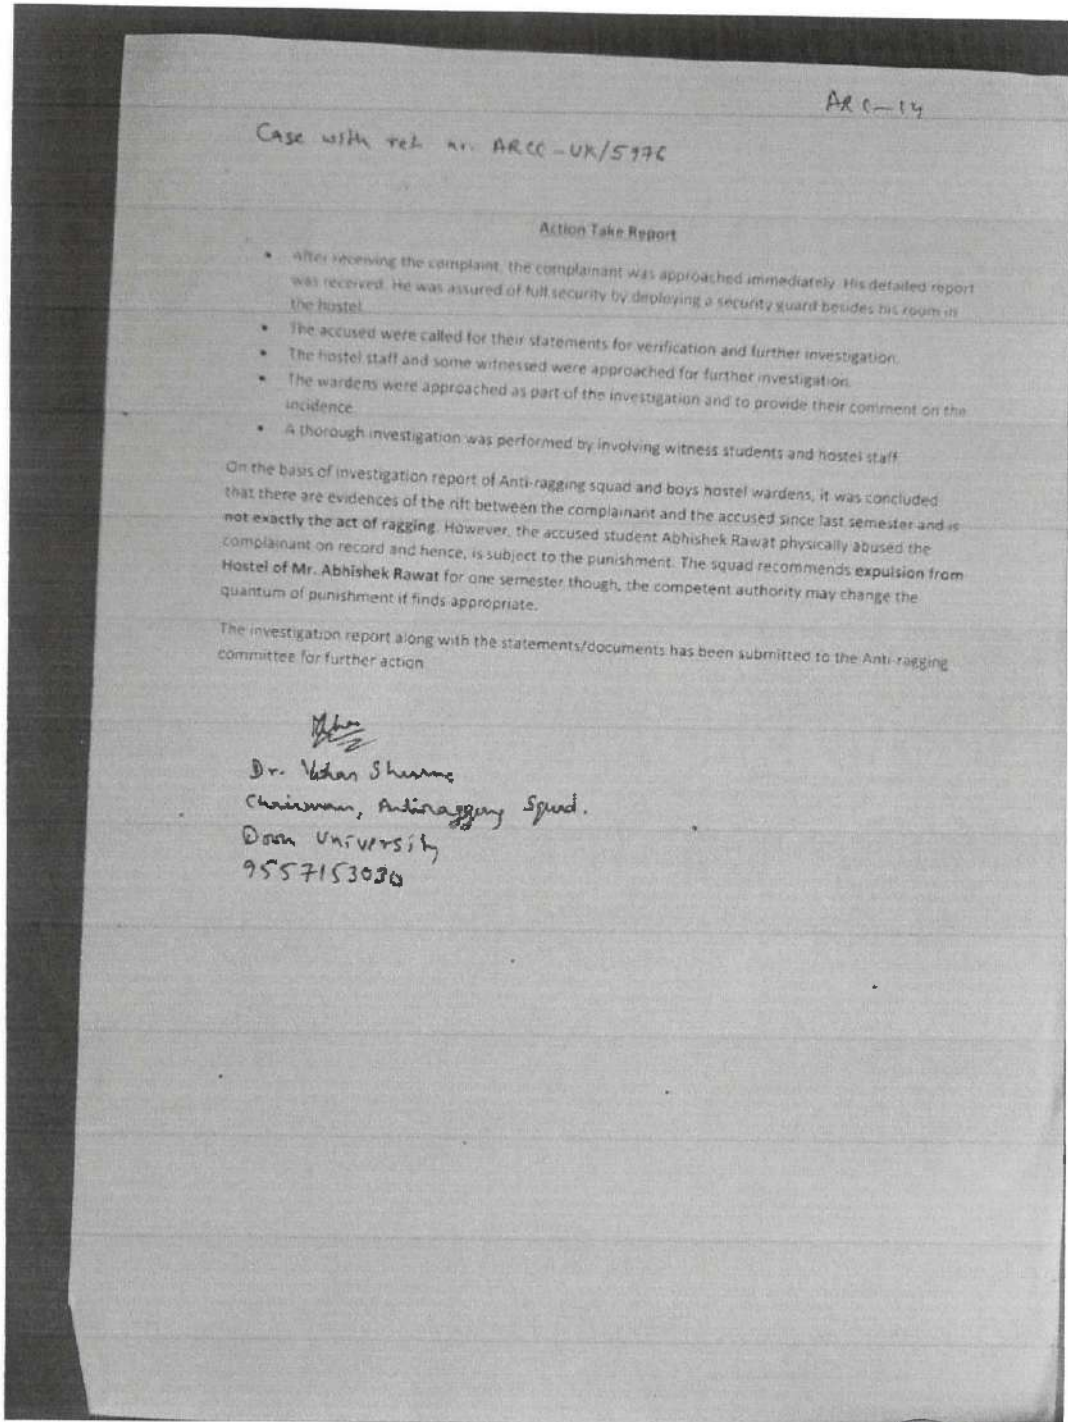 ARC-14
Case with ref. nr. ARCC-UK/5976
Action Take Report
• After receiving the complaint, the complainant was approached immediately. His detailed report
was received. He was assured of full security by deploying a security guard besides his room in
the hostel.
• The accused were called for their statements for verification and further investigation.
• The hostel staff and some witnessed were approached for further investigation.
• The wardens were approached as part of the investigation and to provide their comment on the
incidence.
• A thorough investigation was performed by involving witness students and hostel staff.
On the basis of investigation report of Anti-ragging squad and boys hostel wardens, it was concluded
that there are evidences of the rift between the complainant and the accused since last semester and is
not exactly the act of ragging. However, the accused student Abhishek Rawat physically abused the
complainant on record and hence, is subject to the punishment. The squad recommends expulsion from
Hostel of Mr. Abhishek Rawat for one semester though, the competent authority may change the
quantum of punishment if finds appropriate.
The investigation report along with the statements/documents has been submitted to the Anti-ragging
committee for further action
Dr. Sharma
Chairman, Antiragging Squad.
Doon University
9557153030